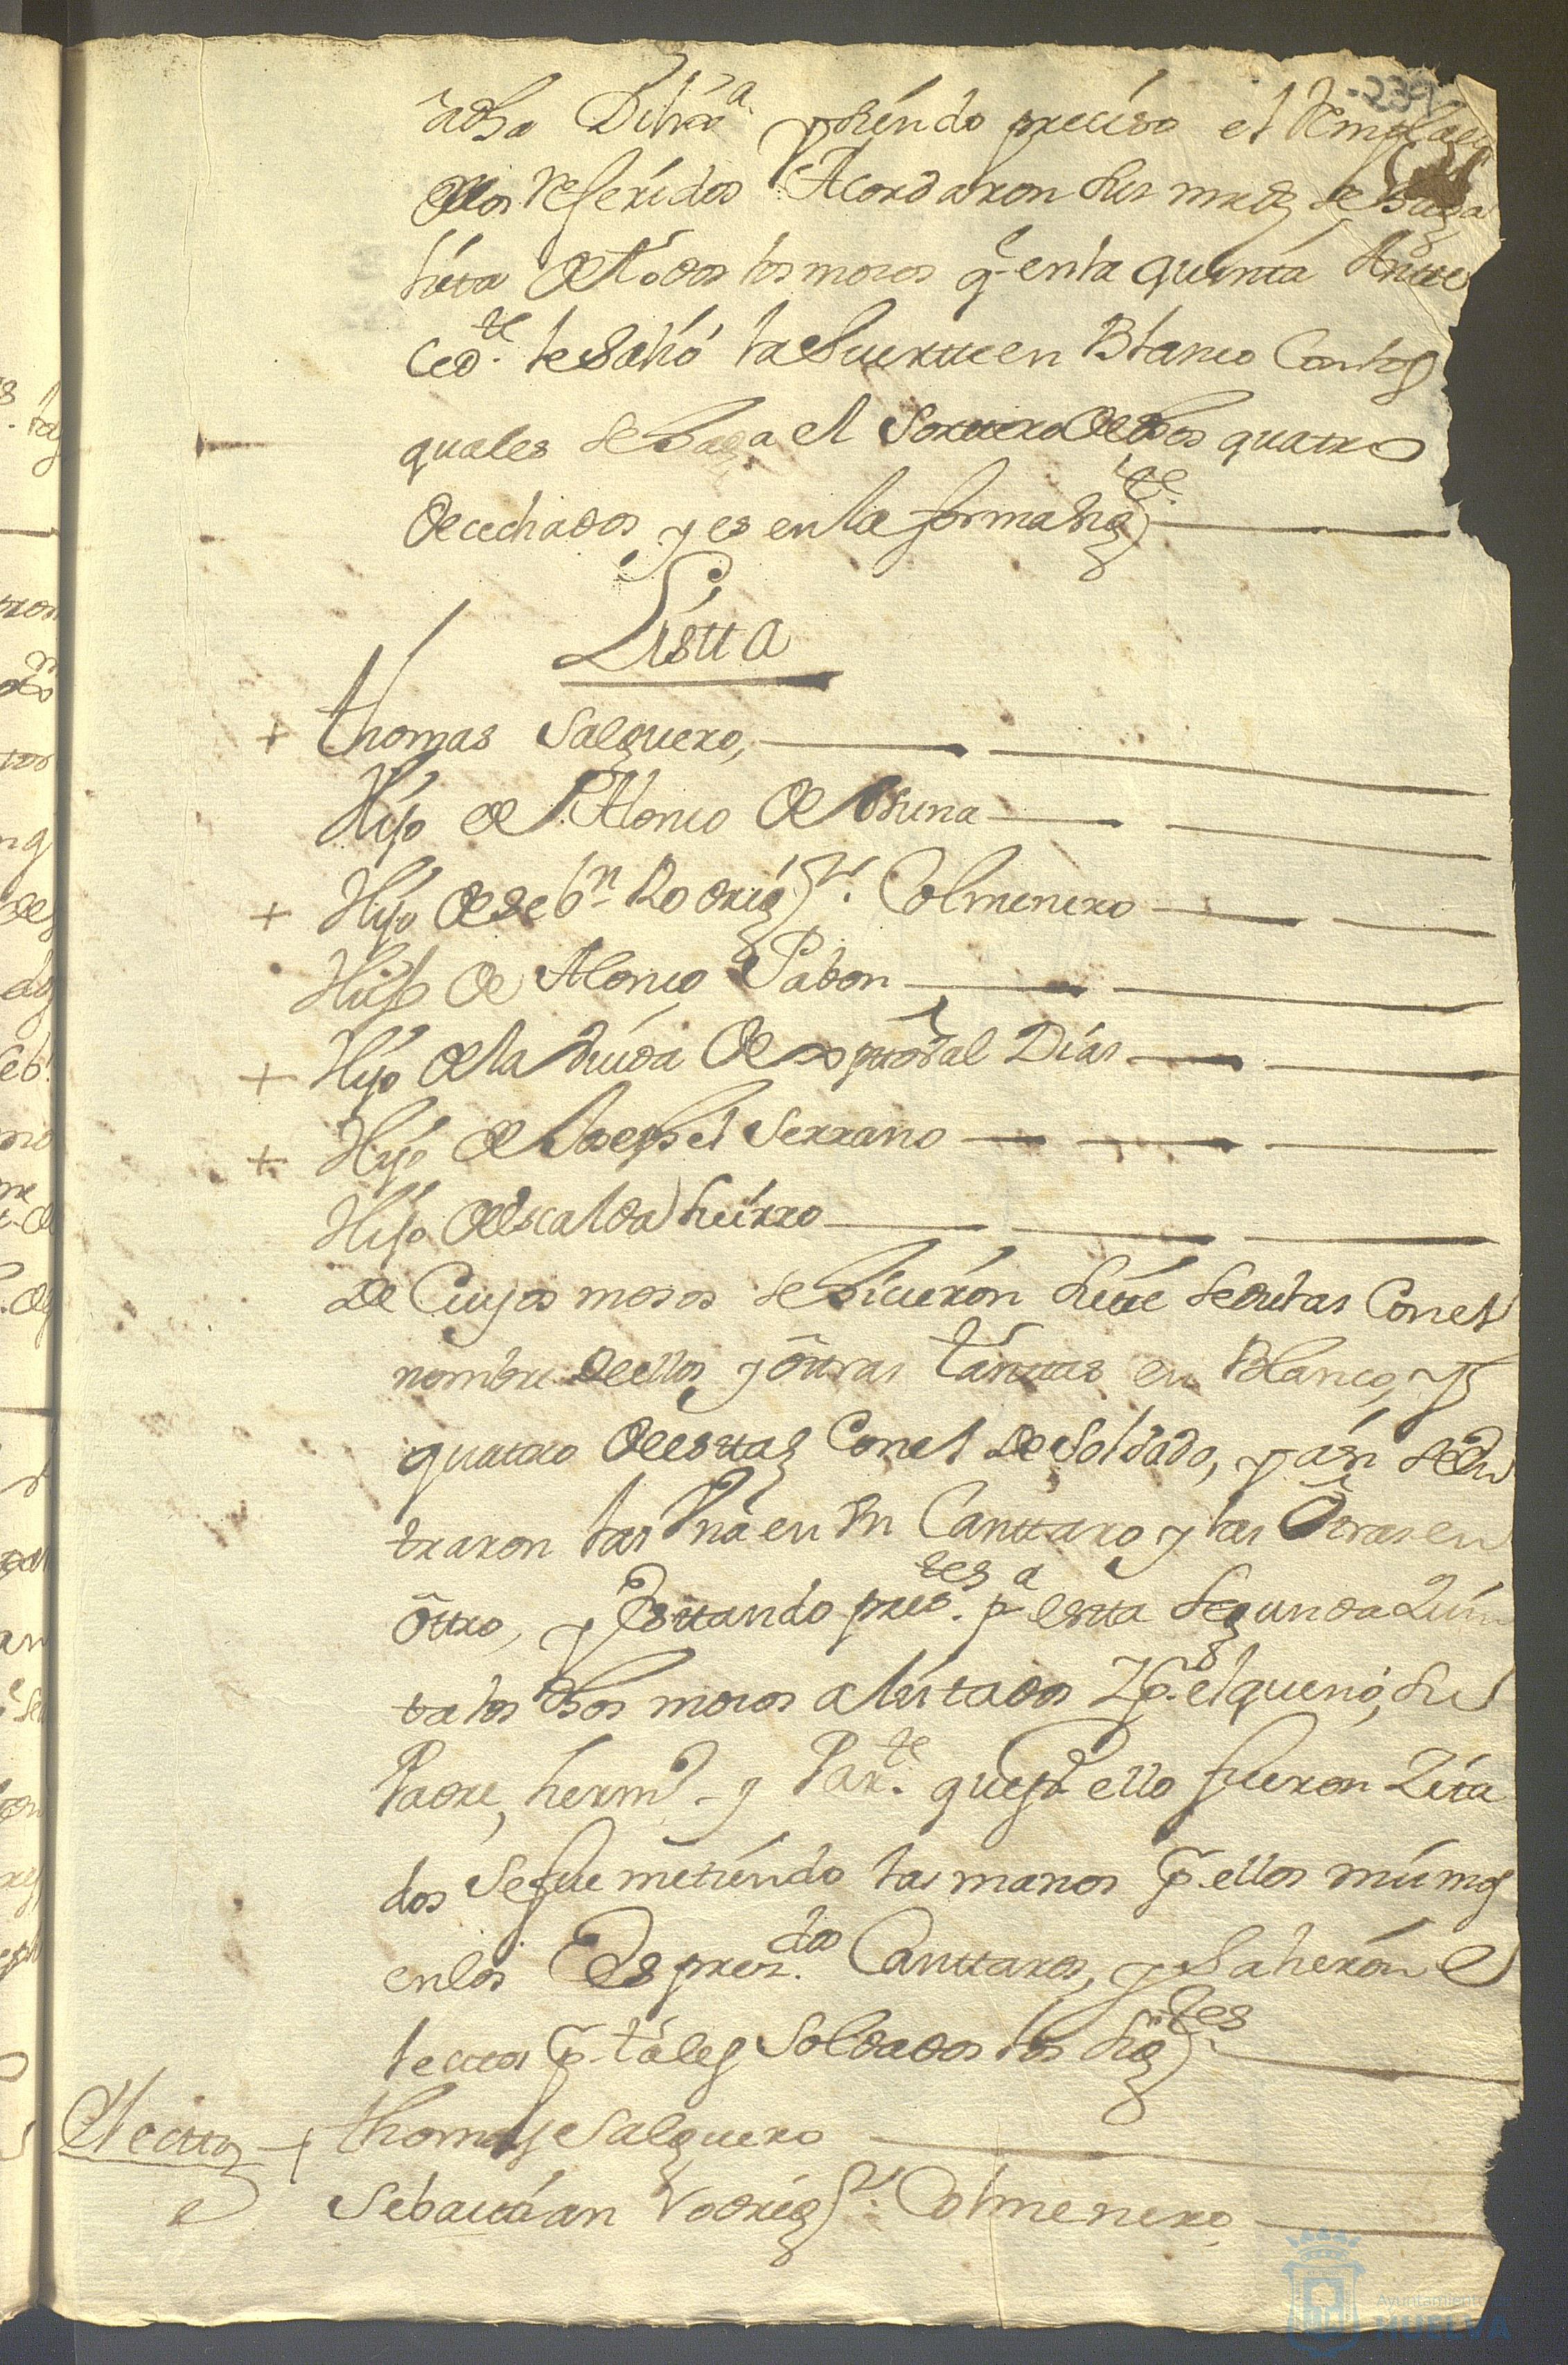 239
a dha Dilixa y siendo preciso el Remplazo
dlos referidos Acordaron sus mrds se haga
lista de todos los mosos q en la quinta Antte
cedte le salió la suertte en Blanco Con los
quales se haga el sortteo de dhos quatro
decechados y es en la forma sigte
Listta
+ thomas Salguero,
Hijo de Alonso de Osuna
+ Hijo de Sebn Rodrigz Colmenero
Hijo de Alonso Pabon
+ Hijo de la viuda de xpttobal Dias
+ Hijo de Joseph el Serrano
Hijo de escalda hierro
De Cuyos mosos se hicieron siete sedulas Con el
nombre de ellos y ottras tanttas en Blanco, y
quatro de esttas Con el de Soldado, y asi se en
traron las Una en Un Canttaro y las Otras en
ottro, y Esttando prestes pa estta segunda Quin
ta los dhos mosos alistados y pr el que no, su
Padre, hermo y Parte que pa ello fueron Zita
dos se fue metiendo las manos pr ellos mismos
en los Espresados Canttaros, y salieron e
lecttos pr tales Soldados los sigtes
Electtos + thomas Salguero
Sebasttian Rodrigz Colmenero
Ayuntamiento
HUELVA